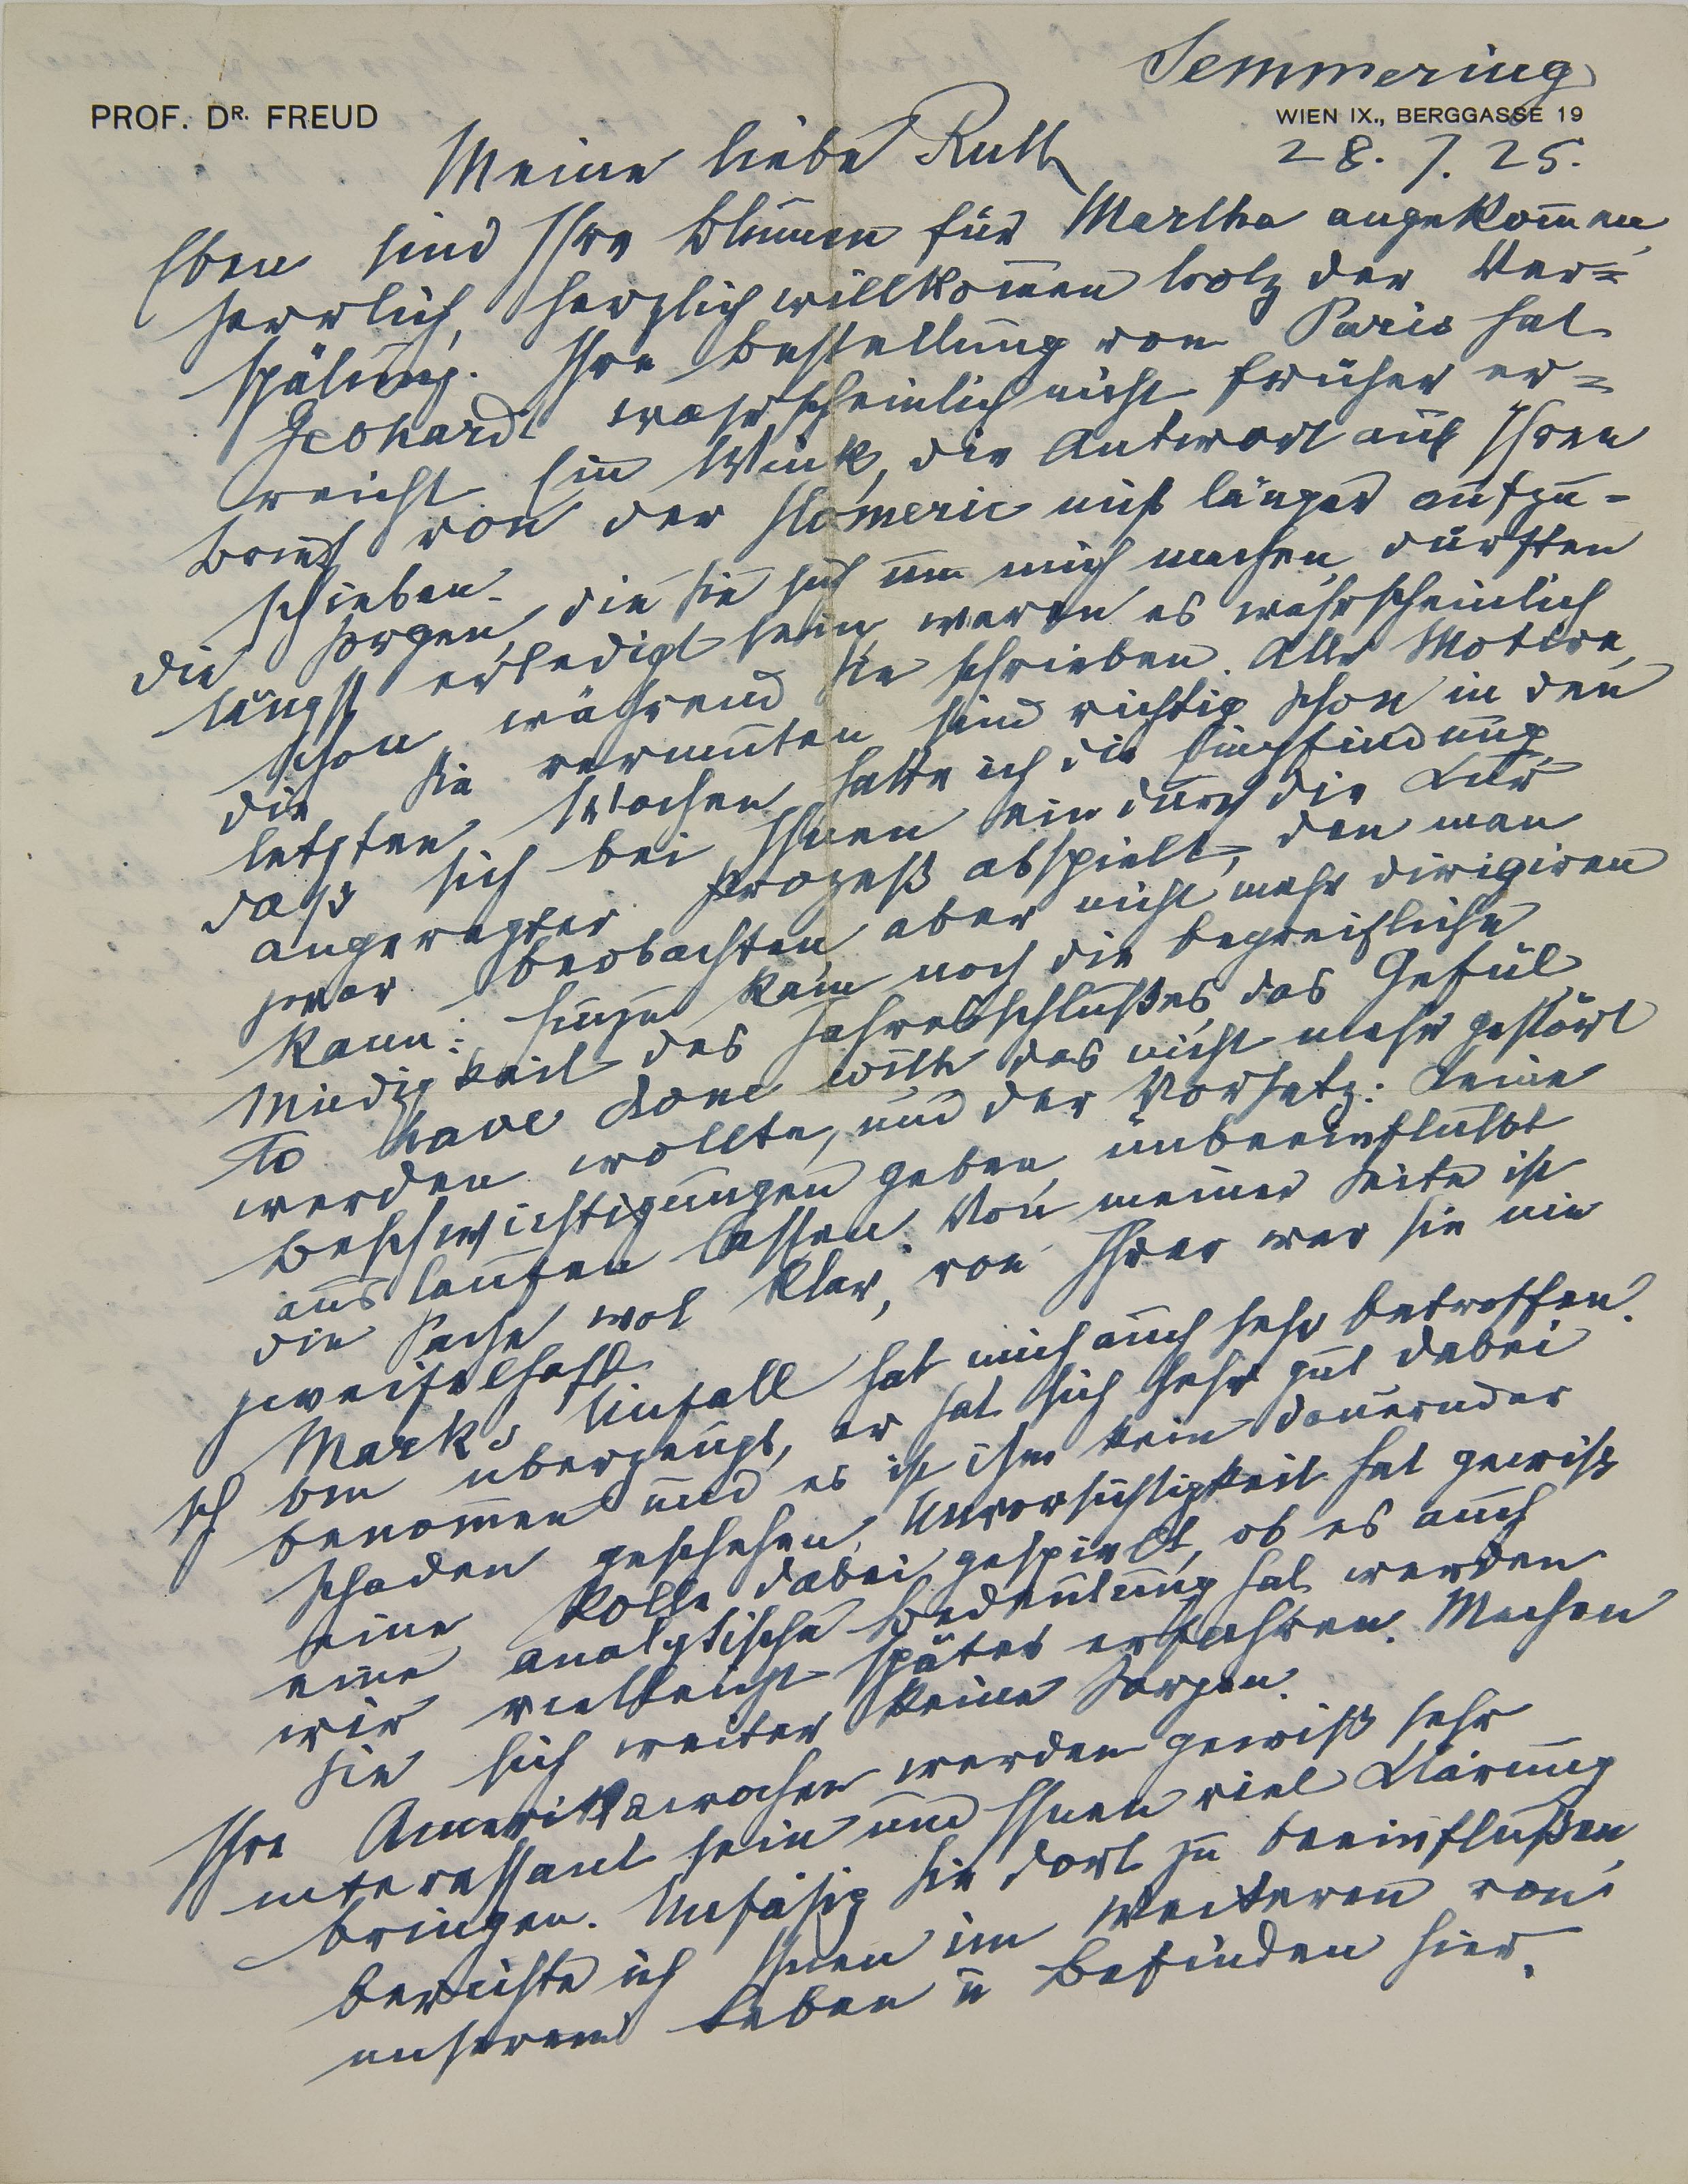 Semmering
PROF. DR. FREUD
WIEN IX., BERGGASSE 19
28. 7. 25.
Meine liebe Ruth
Eben sind Ihre Blumen für Martha angekommen,
herrlich, herzlich willkommen trotz der Ver=
spätung. Ihre Bestellung von Paris hat
Gebhardt wahrscheinlich nicht früher er=
reicht. Ein Wink, die Antwort auf Ihren
Brief von der Homeric nicht länger aufzu-
schieben.
Die Sorgen, die Sie sich um mich machen, dürften
längst erledigt sein, waren es wahrscheinlich
schon während Sie schrieben. Alle Motive,
die Sie vermuten sind richtig, schon in den
letzten Wochen hatte ich die Empfindung
daß sich bei Ihnen ein durch die Kur
angeregter Prozeß abspielt, den man
zwar beobachten, aber nicht mehr dirigiren
kann. Hinzu kam noch die begreifliche
Müdigkeit des Jahresschlußes, das Gefül
to have done with das nicht mehr gestört
werden wollte, und der Vorsatz: keine
Beschwichtigungen geben, unbeeinflußt
auslaufen lassen. Von meiner Seite ist
die Sache wol klar, von Ihrer war sie nie
zweifelhaft.
Marks Unfall hat mich auch sehr betroffen.
Ich bin überzeugt, er hat sich sehr gut dabei
benommen und es ist ihm kein dauernder
Schaden geschehen. Unvorsichtigkeit hat gewiß
eine Rolle dabei gespielt, ob es auch
eine analytische Bedeutung hat werden
wir vielleicht später erfahren. Machen
Sie sich weiter keine Sorgen.
Ihre Amerikawochen werden gewiß sehr
interessant sein und Ihnen viel Klärung
bringen. Unfähig Sie dort zu beeinflußen,
berichte ich Ihnen im Weiteren von
unserem Leben u Befinden hier.